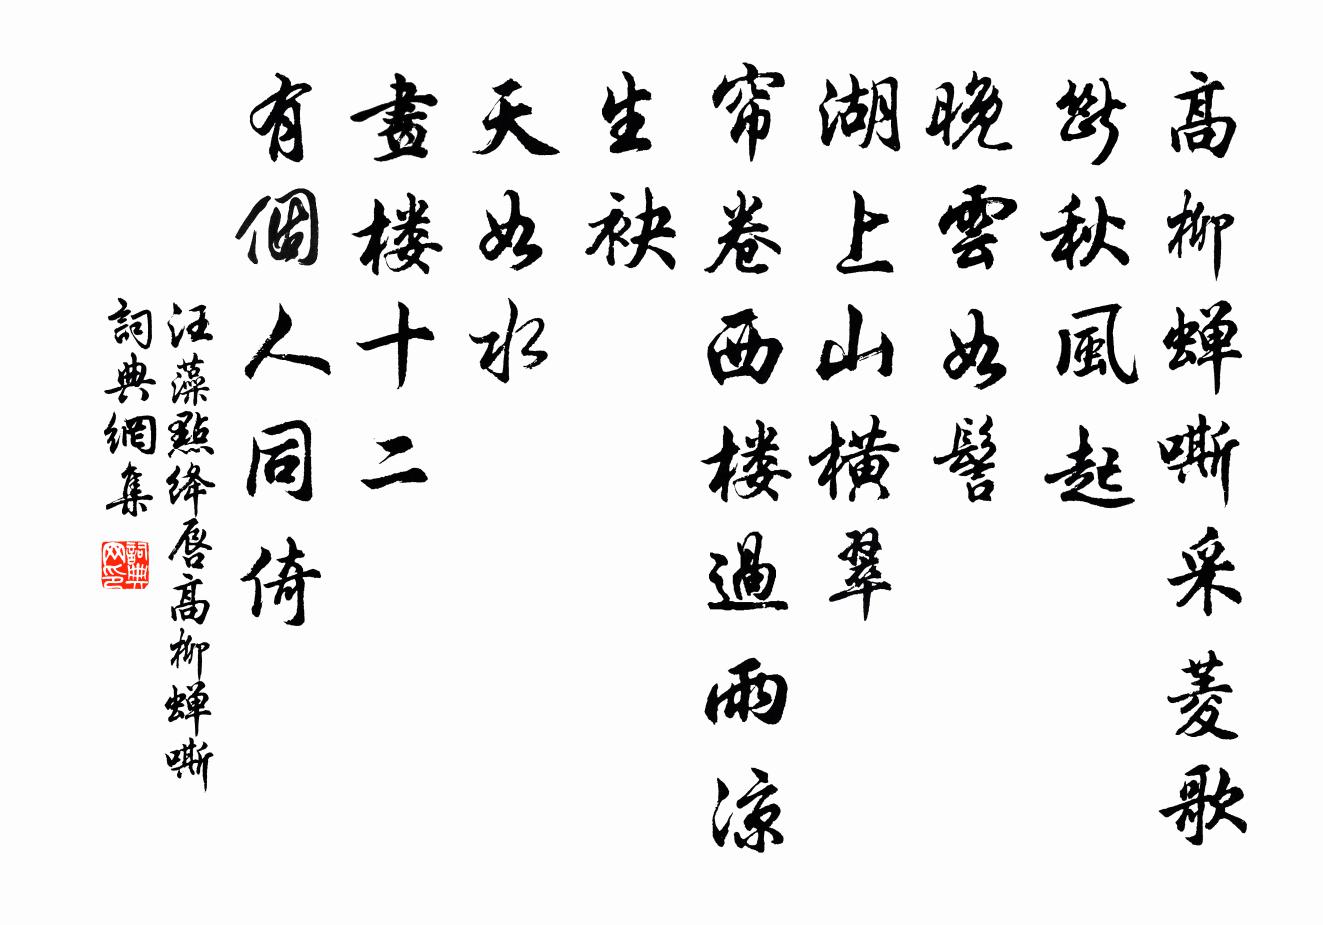 高柳蝉嘶采菱歌
断秋風起
晚雲如髻
湖上山橫翠
帘卷西楼過雨涼
生袂
天如水
畫楼十二
有個人同倚
汪藻點絳唇高柳蝉嘶
詞典網集
詞典网印